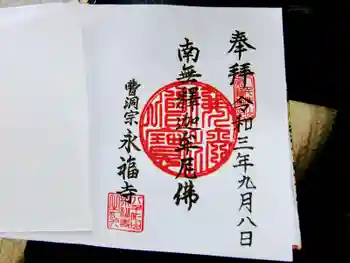 奉拝
令和三年九月八日
南無釋迦牟尼佛
曹洞宗
永福寺